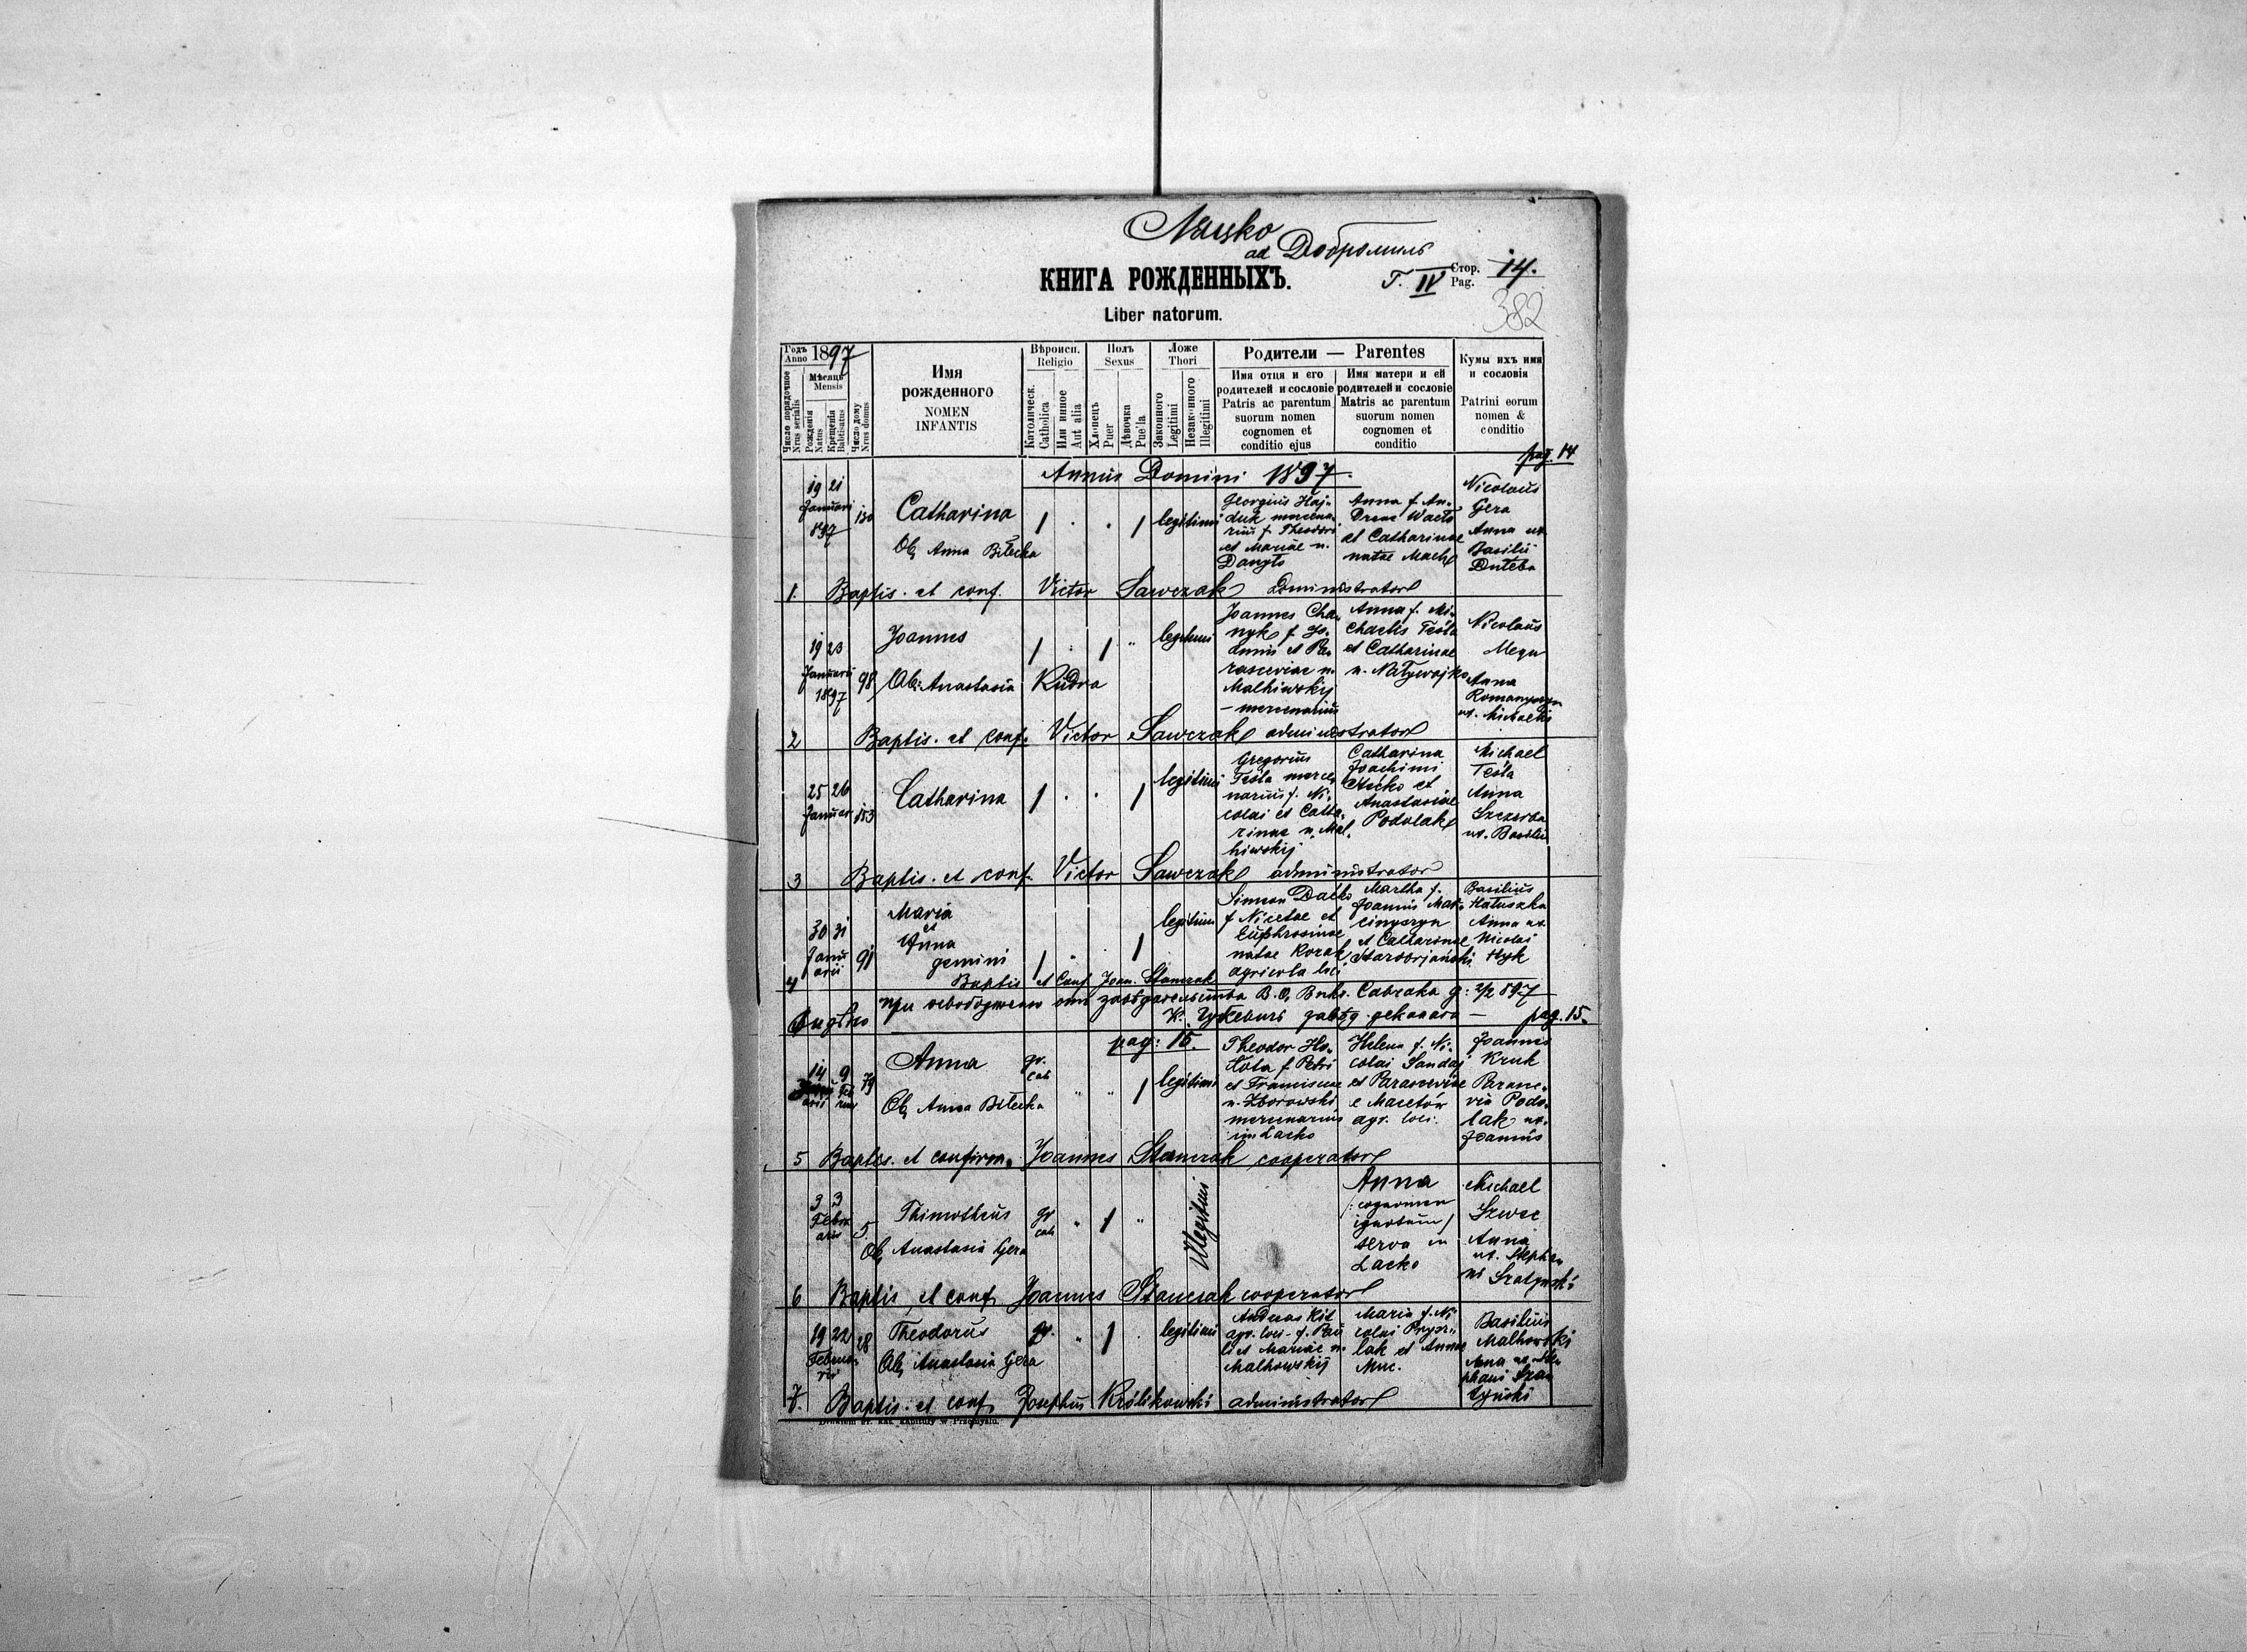 Ляцко
ad Добромиль
КНИГА РОЖДЕННЫХЪ.
Т. IV Стор. Pag. 14.
382
Liber natorum.
Годъ Anno 1897
Число порядочное Nrus serialis
Мѣсяцъ Mensis
Рожденія Natus
Крещенія Babtisatus
Число дому Nrus domus
Имя рожденного
NOMEN INFANTIS
Вѣроисп. Religio
Католическ. Catholica
Или инное Aut alia
Полъ Sexus
Хлопецъ Puer
Дѣвочка Pue'la
Ложе Thori
Законного Legitimi
Незаконного Illegitimi
Родители — Parentes
Имя отця и его родителей и сословіе
Patris ac parentum suorum nomen cognomen et conditio ejus
Имя матери и ей родителей и сословіе
Matris ac parentum suorum nomen cognomen et conditio
Кумы ихъ имя и сословія
Patrini eorum nomen & conditio
pag. 14
Annus Domini 1897.
19 21 Januari 897
130
Catharina
Ob. Anna Bilecka
legitimi
Georgius Haj-
duk mercena-
rius f. Theodori
et Mariae n.
Danyło
Anna f. An-
dreae
et Catharinae
natae Mach
Nicolaus
Gera
Anna ux.
Basilii
Duteba
1. Baptis. et conf. Victor Sawczak administrator
19 23 Januarii 1897
98
Joannes
Ob: Anastasia Kudra
legitimi
Joannes Cha-
nyk f. Jo-
annis et Pa-
rasceviae n.
Malhiwskij
– mercenarius
Anna f. Mi-
chaelis Tešla
et Catharinae
n. Nalywajko
Nicolaus
Anna
ux. Michaelis
2 Baptis. et conf. Victor Sawczak administrator
25 26 Januar
153
Catharina
legitimi
Gregorius
Tešla merce-
narius f. Ni-
colai et Catha-
rinae n. Mal-
hiwskij
Catharina
Joachimi
et
Anastasiae
Podolak
Michael
Tešla
Anna
Szczerba
ux. Basilii
3 Baptis. et conf. Victor Sawczak administrator
30 31 Januarii
91
Maria
et
Anna
gemini
legitimi
Simeon Dačko
f. Nicetae et
Euphrosinae
natae Kozak
agricola loci
Martha f.
Joannis Mar-
cinyszyn
et Catharinae
Basilius
Hałuszka
Anna ux.
Nicolai
Hyk
4 Baptis et Conf. Joan. Stanczak
Видѣно
при В. О. Викт. Савчака д: 2/2 897
pag. 15.
pag: 15.
14 9
79
Anna
gr. cat
Ob. Anna Bilecka
legitimi
Theodor Ho-
łota f. Petri
et Franciscae
n. Zborowski
mercenarius
in Lacko
Helena f. Ni-
colai Sandaj
et Parasceviae
e Macetów
agr. loci.
Joannes
Kruk
Parasce-
via Podo-
lak ux.
Joannis
5 Baptis. et confirm. Joannes Stanczak cooperator
3 3
5
Thimotheus
gr cat
Ob. Anastasia Gera
Illegitimi
Anna
/: cognomen
ignotum/
serva in
Lacko
Michael
Szwec
Anna
ux. Stepha-
ni
6 Baptis. et conf. Joannes Stanczak cooperator
19 22 Februarii
28
Theodorus
gr.
Ob. Anastasia Gera
legitimi
Andreas Kit
agr. loci - f. Pau-
li et Mariae n.
Malhowskij
Maria f. Ni-
colai
lak et Annae
Muc.
Basilius
Malhowski
Anna ux. Ste-
phani
7. Baptis. et conf. Josephus Królikowski administrator
Drukiem gr. kat. kapituły w Przemyślu.